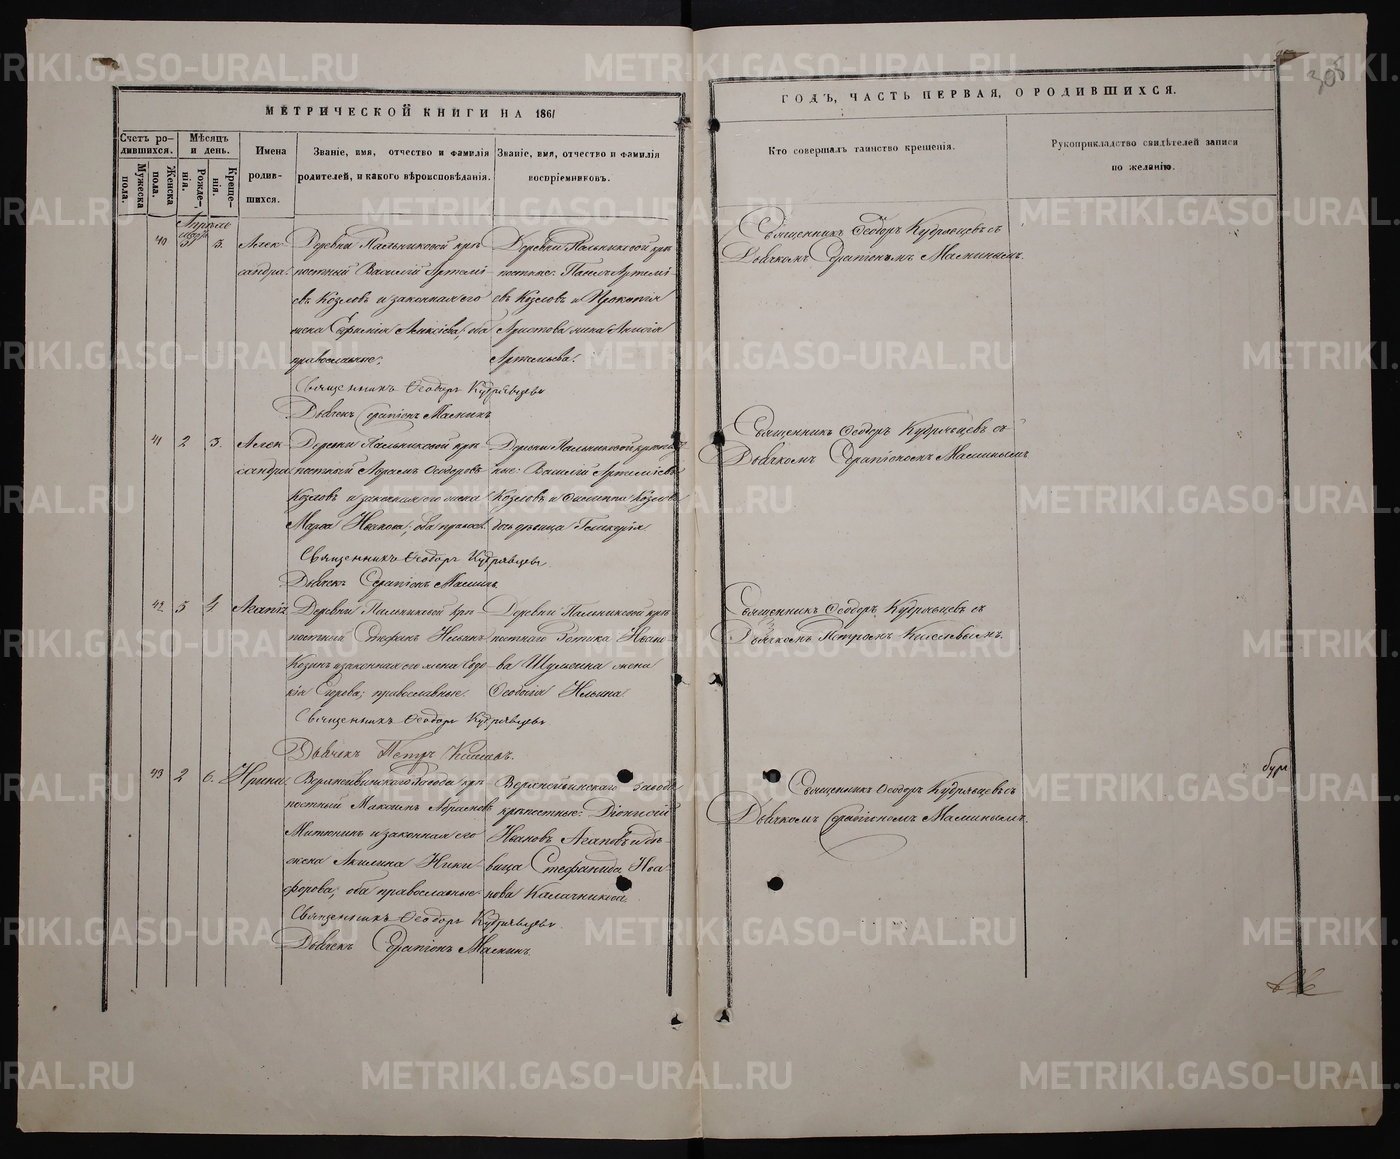 МЕТРИЧЕСКОЙ КНИГИ НА 1861
ГОДЪ, ЧАСТЬ ПЕРВАЯ, О РОДИВШИХСЯ.
308
Счетъ ро-
дившихся.
Мужеска
пола.
Женска
пола.
Мѣсяцъ
и день.
Рожде-
нія.
Креще-
нія.
Имена
родив-
шихся.
Званіе, имя, отчество и фамилія
родителей, и какого вѣроисповѣданія.
Званіе, имя, отчество и фамилія
воспріемниковъ.
Кто совершалъ таинство крещенія.
Рукоприкладство свидѣтелей записи
по желанію.
Апрѣль
40
31
3.
Алек-
сандра.
Деревни Пальниковой крѣ-
постный Василій Артемі-
евъ Козловъ и законная его
жена Евфимія Алексіева; оба
православные.
Священникъ Ѳеодоръ Кудрявцевъ
Дьячекъ Серапіонъ Маминъ
Деревни Пальниковой крѣ-
постные: Павелъ Артемі-
евъ Козловъ и Прокопія
Аристова жена
Артемьева.
Священникъ Ѳеодоръ Кудрявцевъ съ
Дьячкомъ Серапіономъ Маминымъ.
41
2
3.
Алек-
сандра
Деревни Пальниковой крѣ-
постный Абрамъ Ѳеодоровъ
Козловъ и законная его жена
Марѳа Иванова; оба правосл.
Священникъ Ѳеодоръ Кудрявцевъ
Дьячекъ Серапіонъ Маминъ.
Деревни Пальниковой крѣпост-
ные: Василій Артеміевъ
Козловъ и Филиппа Козлова
дочь дѣвица Гликерія.
Священникъ Ѳеодоръ Кудрявцевъ съ
Дьячкомъ Серапіономъ Маминымъ.
42
3
4
Агапія
Деревни Пальниковой крѣ-
постный Стефанъ Ильинъ
Козинъ и законная его жена Евдо-
кія Егорова; православные.
Священникъ Ѳеодоръ Кудрявцевъ
Дьячекъ Петръ Киселевъ.
Деревни Пальниковой крѣ-
постнаго Ивано-
ва Шумкина жена
Ильина
Священникъ Ѳеодоръ Кудрявцевъ съ
Дьячкомъ Петромъ Киселевымъ.
43
2
6.
Ирина.
Верхнейвинскаго завода крѣ-
постный Максимъ Абрамовъ
Митюнинъ и законная его
жена Акилина Ники-
форова; оба православные.
Священникъ Ѳеодоръ Кудрявцевъ.
Дьячекъ Серапіонъ Маминъ.
Верхнейвинскаго завода
крѣпостные: Діонисій
Ивановъ Агаповъ и дѣ-
вица Стефанида Ива-
нова Калачникова.
Священникъ Ѳеодоръ Кудрявцевъ съ
Дьячкомъ Серапіономъ Маминымъ.
METRIKI.GASO-URAL.RU